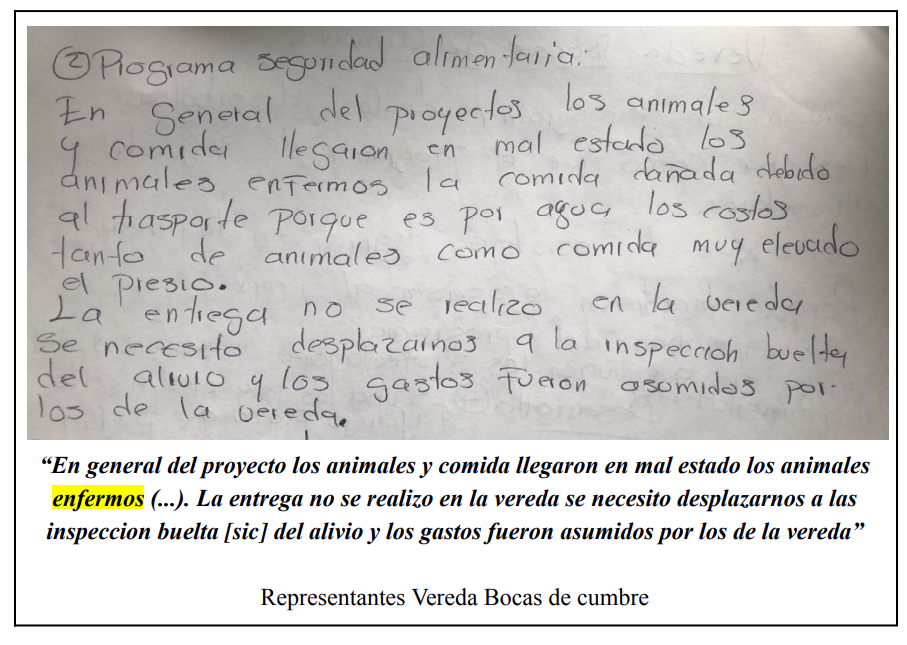 ② Programa seguridad alimentaria:
En General del proyectos los animales
y comida llegaron en mal estado los
animales enfermos la comida dañada debido
al trasporte porque es por agua los costos
tanto de animales como comida muy elevado
el presio.
La entrega no se realizo en la vereda
Se necesito desplazarnos a la inspeccion buelta
del alivio y los gastos Fueron asumidos por
los de la vereda.
“En general del proyecto los animales y comida llegaron en mal estado los animales
enfermos (...). La entrega no se realizo en la vereda se necesito desplazarnos a las
inspeccion buelta [sic] del alivio y los gastos fueron asumidos por los de la vereda”
Representantes Vereda Bocas de cumbre